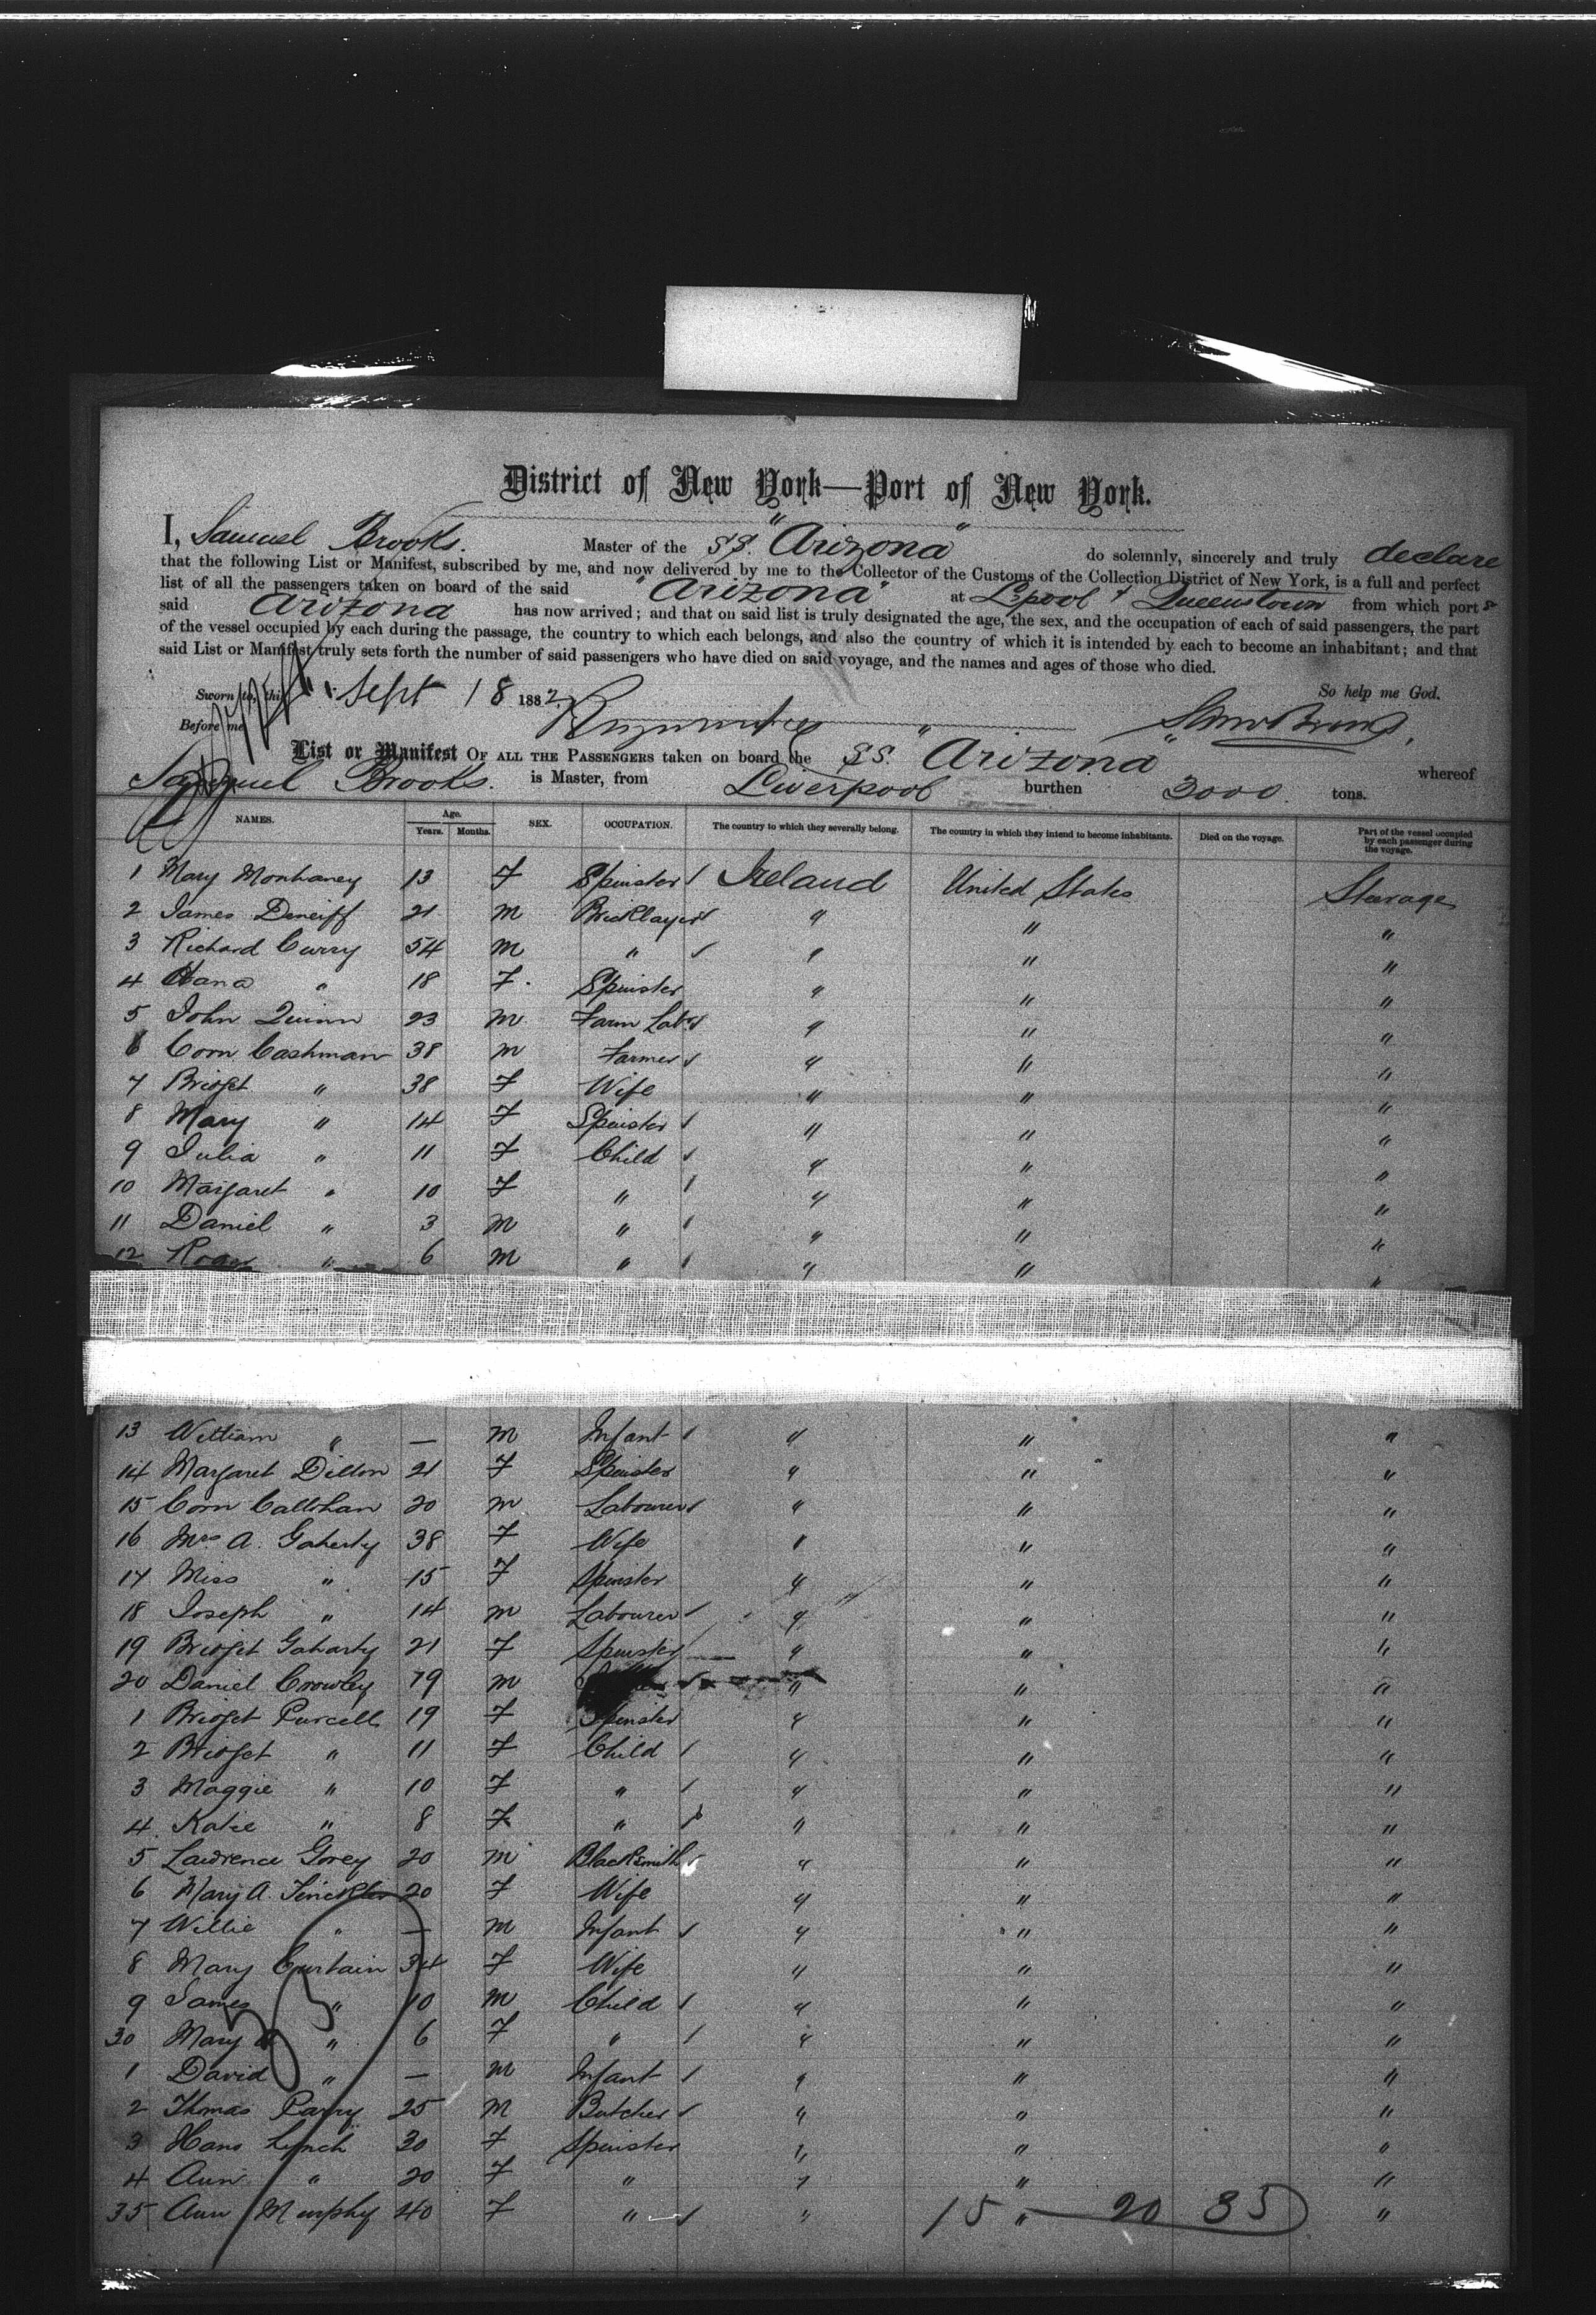 District of New York—Port of New York.
I, Samuel Brooks. Master of the SS. "Arizona" do solemnly, sincerely and truly declare
that the following List or Manifest, subscribed by me, and now delivered by me to the Collector of the Customs of the Collection District of New York, is a full and perfect
list of all the passengers taken on board of the said "Arizona" at L'pool & Queenstown from which port s
said Arizona has now arrived; and that on said list is truly designated the age, the sex, and the occupation of each of said passengers, the part
of the vessel occupied by each during the passage, the country to which each belongs, and also the country of which it is intended by each to become an inhabitant; and that
said List or Manifest truly sets forth the number of said passengers who have died on said voyage, and the names and ages of those who died.
Sworn to, this Sept 18 1882. So help me God.
Before me
List or Manifest OF ALL THE PASSENGERS taken on board the SS. "Arizona" whereof
Samuel Brooks. is Master, from Liverpool burthen 3000 tons.
NAMES. Age. Years. Months. SEX. OCCUPATION. The country to which they severally belong. The country in which they intend to become inhabitants. Died on the voyage. Part of the vessel occupied by each passenger during the voyage.
1 Mary Monhaney 13 F Spinster Ireland United States Steerage
2 James Deneiff 21 M Bricklayer " " "
3 Richard Curry 54 M " " " "
4 Hana " 18 F. Spinster " " "
5 John Quinn 23 M Farm Labr " " "
6 Corn. Cashman 38 M Farmer " " "
7 Bridget " 38 F Wife " " "
8 Mary " 14 F Spinster " " "
9 Julia " 11 F Child " " "
10 Margaret " 10 F " " " "
11 Daniel " 3 M " " " "
12 Roger " 6 M " " " "
13 William " — M Infant " " "
14 Margaret Dillon 21 F Spinster " " "
15 Corn Callihan 20 M Labourer " " "
16 Mrs A. Gaherty 38 F Wife " " "
17 Miss " 15 F Spinster " " "
18 Joseph " 14 M Labourer " " "
19 Bridget Gaharty 21 F Spinster " " "
20 Daniel Crowley 19 M " " "
1 Bridget Purcell 19 F Spinster " " "
2 Bridget " 11 F Child " " "
3 Maggie " 10 F " " " "
4 Katie " 8 F " " " "
5 Lawrence Gorey 20 M Blacksmith " " "
6 Mary A. 20 F Wife " " "
7 Willie " — M Infant " " "
8 Mary Curtain 34 F Wife " " "
9 James " 10 M Child " " "
30 Mary " 6 F " " " "
1 David " — M Infant " " "
2 Thomas Parry 25 M Butcher " " "
3 Hano Lynch 30 F Spinster " " "
4 Ann " 20 F " " " "
35 Ann Murphy 40 F " " " "
15 — 20 35